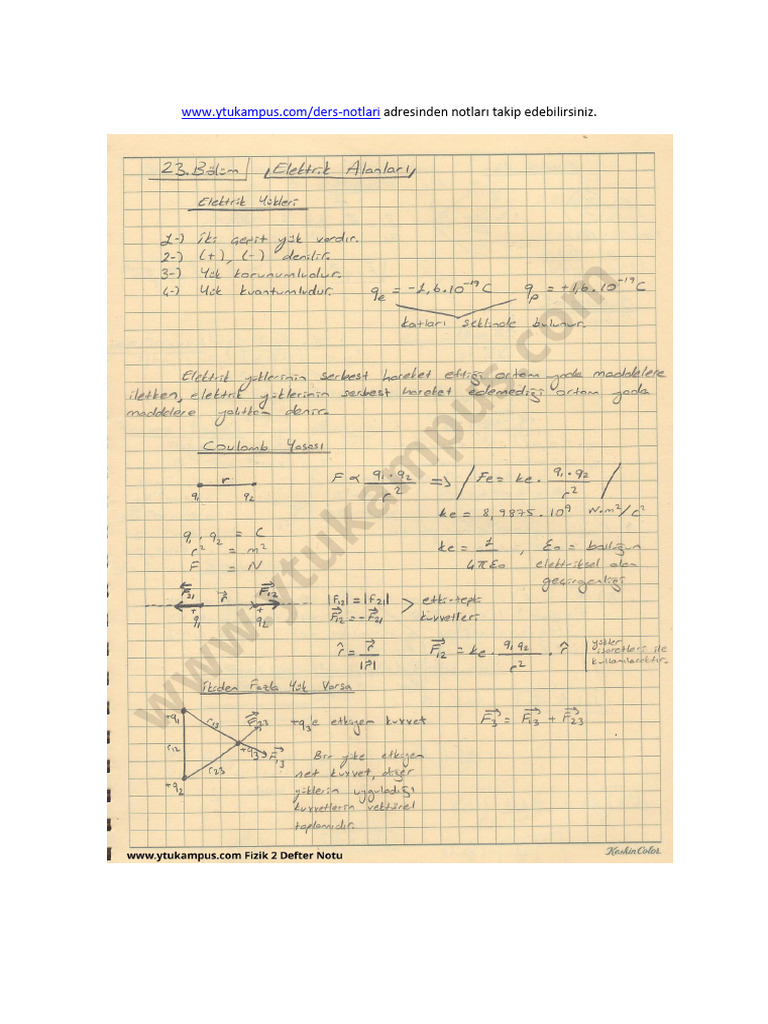 www.ytukampus.com/ders-notlari adresinden notları takip edebilirsiniz.
23.Bölüm Elektrik Alanları
Elektrik Yükleri
1-) İki çeşit yük vardır.
2-) (+), (-) denilir.
3-) Yük korunumludur.
4-) Yük kuantumludur. qe = -1,6.10^-19 C qp = +1,6.10^-19 C
katları şeklinde bulunur.
Elektrik yüklerinin serbest hareket ettiği ortam yada maddelere
iletken, elektrik yüklerinin serbest hareket edemediği ortam yada
maddelere yalıtkan denir.
Coulomb Yasası
r
q1 q2
F ∝ q1.q2 / r^2 => Fe = ke. q1.q2 / r^2
ke = 8,9875.10^9 N.m^2/C^2
q1, q2 = C
r^2 = m^2
F = N
ke = 1 / 4πε0 , ε0 = boşluğun
elektriksel alan
geçirgenliği
F21 r F12
+ +
q1 q2
|F12| = |F21|
F12 = -F21
> etki-tepki
kuvvetleri
r̂ = r / |r| F12 = ke. q1 q2 / r^2 . r̂
yükler
işaretleri ile
kullanılacaktır.
İkiden Fazla Yük Varsa
+q1 r13 F23
r12 +q3 F13
+q2 r23
+q3'e etkiyen kuvvet F3 = F13 + F23
Bir yüke etkiyen
net kuvvet, diğer
yüklerin uyguladığı
kuvvetlerin vektörel
toplamıdır.
www.ytukampus.com
www.ytukampus.com Fizik 2 Defter Notu
KeskinColor